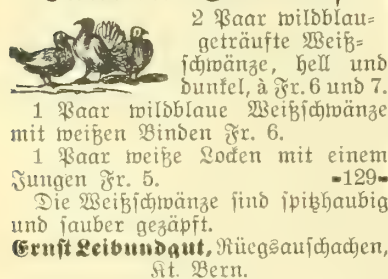 2 Paar wildblau-
geträufte Weiß-
schwänze, hell und
dunkel, à Fr. 6 und 7.
1 Paar wildblaue Weißschwänze
mit weißen Binden Fr. 6.
1 Paar weiße Locken mit einem
Jungen Fr. 5. -129-
Die Weißschwänze sind spitzhaubig
und sauber gezäpft.
Ernst Leibundgut, Rüegsauschachen,
Kt. Bern.